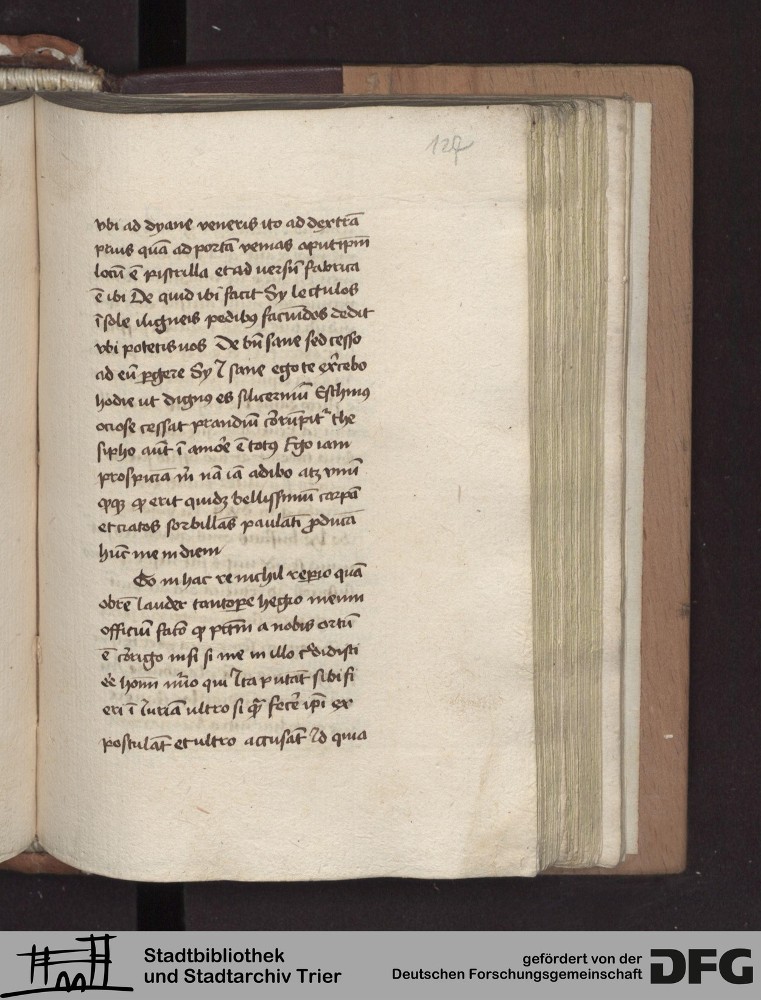 127
vbi ad dyane veneris ito ad dextrā
prius quā ad portā venias aput ipm̄
locū ē pistrilla et ad uersū fabrica
ē ibi De quid ibi facit Sy lectulos
ī sole iligneis pedibꝫ faciūdos dedit
vbi potetis uos De bn̄ sane sed cesso
ad eū ꝑgere Sy I sane ego te exercebo
hodie ut dignꝰ es silicerniū Eschinꝰ
ociose cessat prandiū corrūpitur the
sipho aūt ī amore ē totꝰ Ego iam
prospiciā m̄ nā iā adibo atqꝫ vnū
erit quidꝫ bellissimū carpā
et ciatos sorbillās paulatī ꝓducā
hūc me in diem
Eo in hac re nichil reperio quā
obrē lauder tantope hegio meum
officiū facio ꝙ pctm̄ a nobis ortū
ē corrigo nisi si me in illo credidisti
ee̅ homī nūo qui ita putāt sibi fi
eri ī iuriā ultro si quā fecē ipī ex
postulāt et ultro accusāt Id quia
Stadtbibliothek
und Stadtarchiv Trier
gefördert von der
Deutschen Forschungsgemeinschaft
DFG